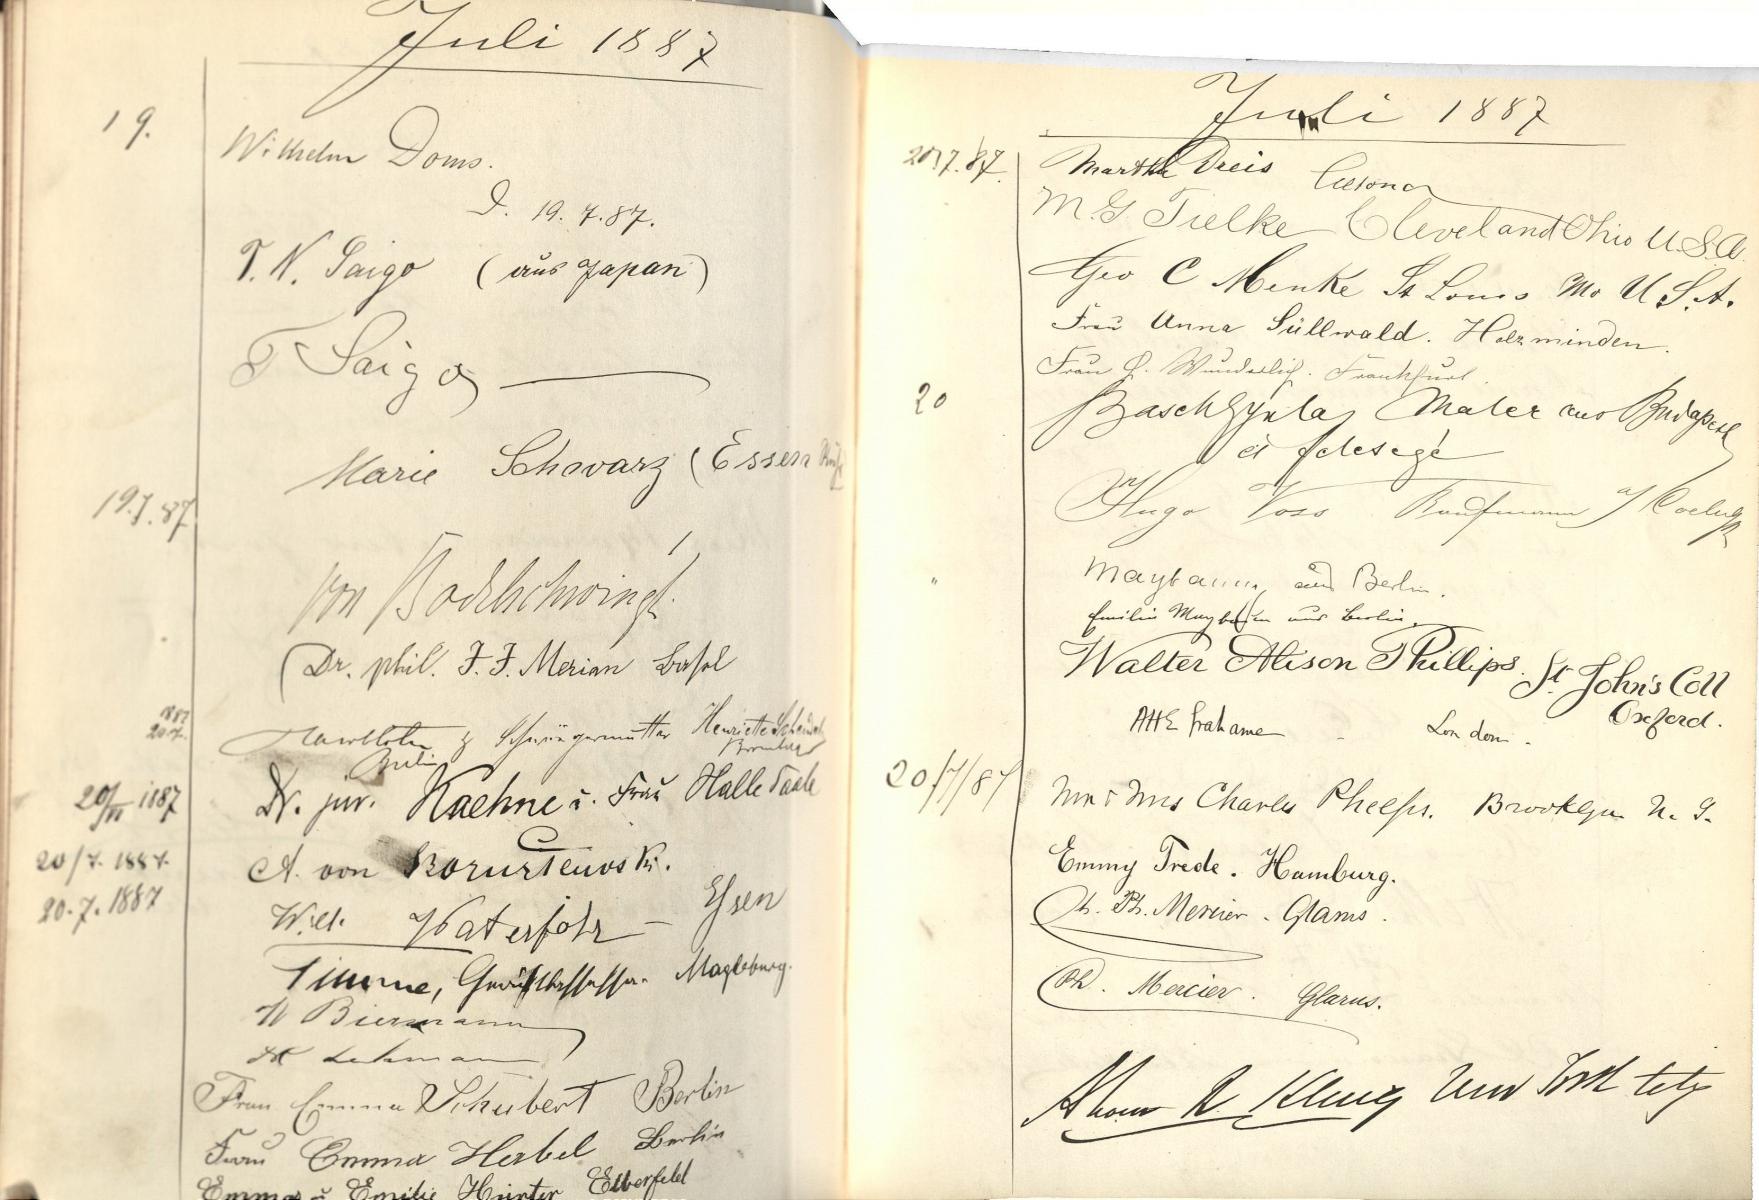 Juli 1887
19.
Wilhelm Doms.
D. 19.7.87.
T. N. Saigo (aus Japan)
T Saigo
Marie Schwarz (Essen
19.7.87
von Bodelschwingh.
Dr. phil. F. F. Merian Basel
1887
20.7.
Schwiegermutter Henriette
Berlin Bromberg
20/VII 1887 Dr. jur. Kaehne u. Frau Halle Saale
20/7. 1887. A. von
20.7.1887 Wilh. Waterfohr - Essen
Timme, Magdeburg.
W Biermann
Lehmann
Frau Emma Schubert Berlin
Frau Emma Herbel Berlin
Emma u Emilie Hünter Elberfeld
Juli 1887
20.7.87. Martha Dreis
M. G. Tielke Cleveland Ohio U.S.A.
Geo C Menke St Louis Mo U.S.A.
Frau Anna Süllwald. Holzminden.
Frau Wunderlich. Frankfurt.
20 Basch Gyula, Maler aus Budapest
és felesége
Hugo Voss Kaufmann a/
" Maybaum aus Berlin.
Emilie Maybaum aus Berlin.
Walter Alison Phillips. St John's Coll
Oxford.
AHE Grahame - London.
20/7/87 Mr & Mrs Charles Phelps. Brooklyn N. Y.
Emmy Trede. Hamburg.
Ch. Ph. Mercier. Glarus.
Ph. Mercier. Glarus.
New York City